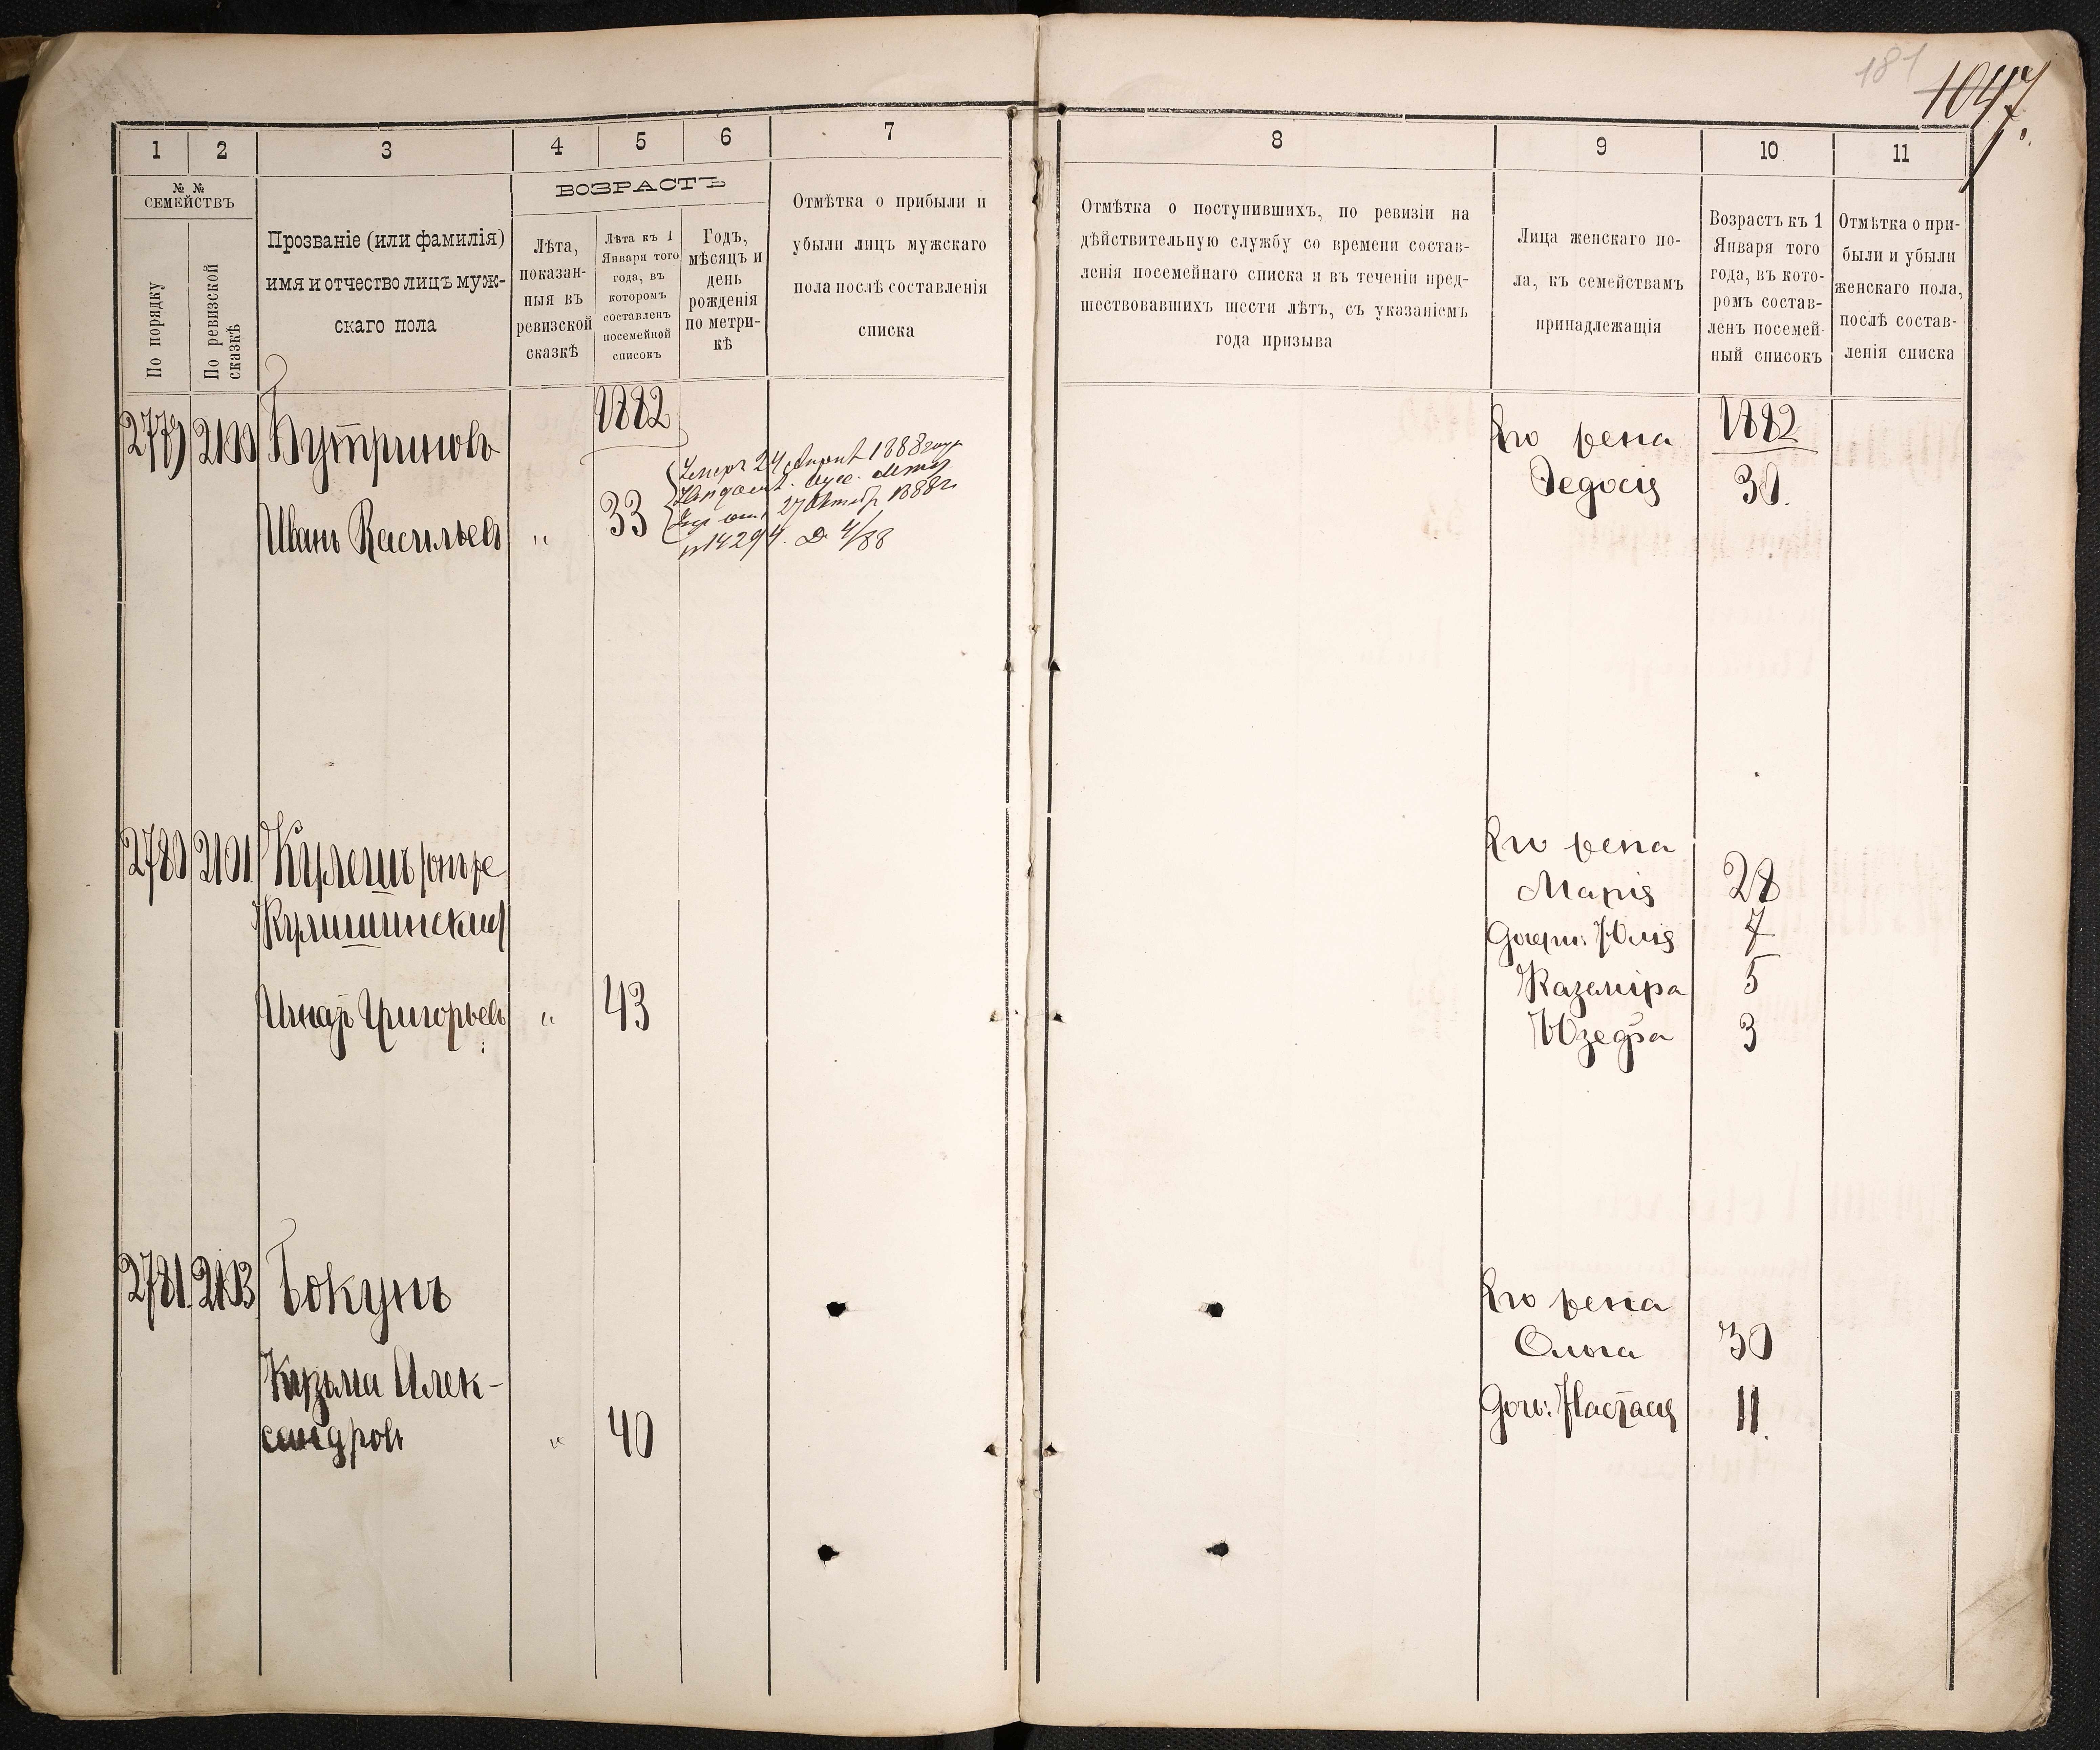 181
1047
1
2
3
4
5
6
7
№ №
СЕМЕЙСТВЪ
По порядку
По ревизской
сказкѣ
Прозваніе (или фамилія)
имя и отчество лицъ муж-
скаго пола
ВОЗРАСТЪ
Лѣта,
показан-
ныя въ
ревизской
сказкѣ
Лѣта къ 1
Января того
года, въ
которомъ
составленъ
посемейной
списокъ
Годъ,
мѣсяцъ и
день
рожденія
по метри-
кѣ
Отмѣтка о прибыли и
убыли лицъ мужскаго
пола послѣ составленія
списка
8
9
10
11
Отмѣтка о поступившихъ, по ревизіи на
дѣйствительную службу со времени состав-
ленія посемейнаго списка и въ теченіи пред-
шествовавшихъ шести лѣтъ, съ указаніемъ
года призыва
Лица женскаго по-
ла, къ семействамъ
принадлежащія
Возрастъ къ 1
Января того
года, въ кото-
ромъ состав-
ленъ посемей-
ный списокъ
Отмѣтка о при-
были и убыли
женскаго пола,
послѣ состав-
ленія списка
1882
2779 2100 Бутримовъ
Иванъ Васильевъ " 33
Умеръ 24 1888 года
27 Октяб. 1888 г.
№ 14294. Д. 4/88
1882
Его жена
Федосія 30.
2780 2101 Кулешъ /онъ же
Кулишинскій/
Игнат Григорьевъ " 43
Его жена
Марія 28
дочери: Юлія 7
Каземіра 5
Юзефа 3
2781. 2103 Бокунъ
Кузьма Алек-
сандровъ " 40
Его жена
Ольга 30
дочь: Настася 11.